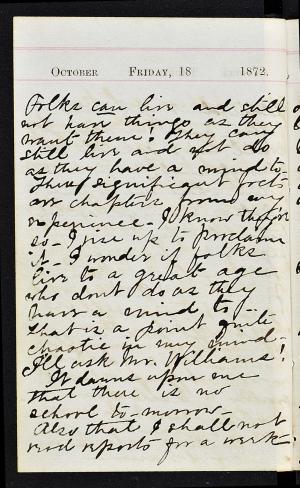 October Friday, 18 1872.
Folks can live and still
not have things as they
want them! They can
still live and not do
as they have a mind to.
These significant facts
are chapters from my
experience I know they're
so - I rise up to proclaim
it - I wonder if folks
live to a great age
who dont do as they
have a mind to -
that is a point quite
chaotic in my mind -
I'll ask Mr. Williams!
It dawns upon me
that there is no
school to-morrow -
Also that I shall not
read reports for a week.